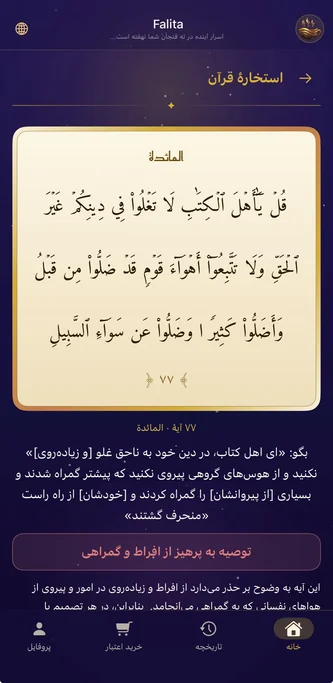 Falita
اسرار آینده در ته فنجان شما نهفته است...
استخارهٔ قرآن
المائدة
قُلْ يَٰٓأَهْلَ ٱلْكِتَٰبِ لَا تَغْلُوا۟ فِي دِينِكُمْ غَيْرَ
ٱلْحَقِّ وَلَا تَتَّبِعُوٓا۟ أَهْوَآءَ قَوْمٍ قَدْ ضَلُّوا۟ مِن قَبْلُ
وَأَضَلُّوا۟ كَثِيرًا وَضَلُّوا۟ عَن سَوَآءِ ٱلسَّبِيلِ
﴿ ٧٧ ﴾
۷۷ آیهٔ · المائدة
بگو: «ای اهل کتاب، در دین خود به ناحق غلو [و زیاده‌روی]»
نکنید و از هوس‌های گروهی پیروی نکنید که پیشتر گمراه شدند و
بسیاری [از پیروانشان] را گمراه کردند و [خودشان] از راه راست
«منحرف گشتند»
توصیه به پرهیز از افراط و گمراهی
این آیه به وضوح بر حذر می‌دارد از افراط و زیاده‌روی در امور و پیروی از
هواهای نفسانی که به گمراهی می‌انجامد. بنابراین، در هر تصمیم یا
خانه
تاریخچه
خرید اعتبار
پروفایل